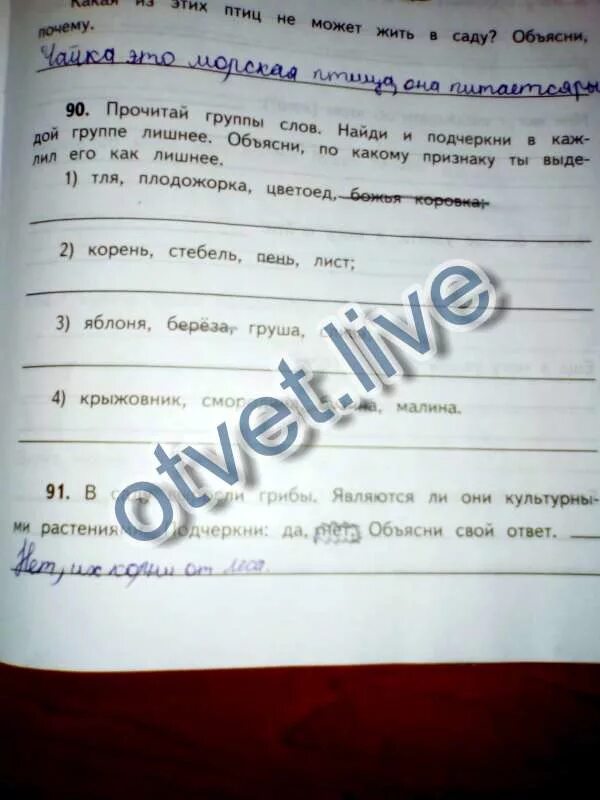 Какая из этих птиц не может жить в саду? Объясни,
почему.
Чайка это морская птица, она питается
90. Прочитай группы слов. Найди и подчеркни в каж-
дой группе лишнее. Объясни, по какому признаку ты выде-
лил его как лишнее.
1) тля, плодожорка, цветоед, божья коровка;
2) корень, стебель, пень, лист;
3) яблоня, берёза, груша,
4) крыжовник, малина.
91. В грибы. Являются ли они культурны-
ми Подчеркни: да, нет. Объясни свой ответ.
Нет, их корни от леса.
otvet.live